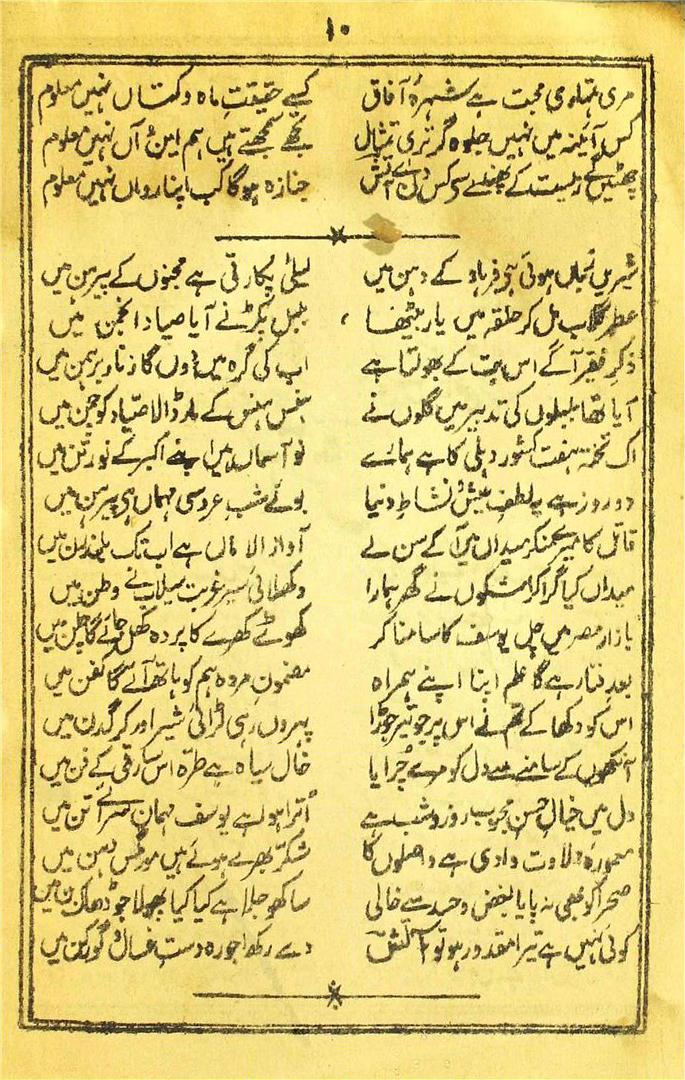 ۱۰
مری تمہاری محبت ہے شہرۂ آفاق کسے حقیقتِ ماہ و کتاں نہیں معلوم
کس آئینہ میں نہیں جلوہ گر تری تمثال تجھے سمجھتے ہیں ہم این و آں نہیں معلوم
چھٹیں گے زیست کے پھندے سے کس دن اے آتش جنازہ ہوگا کب اپنا رواں نہیں معلوم
شیریں زباں ہوئی ہی فرہاد کے دہن میں لیلیٰ پکارتی ہے مجنوں کے پیرہن میں
عطر گلاب مل کر حلقہ میں یار بیٹھا بلبل پکڑنے آیا صیاد انجمن میں
ذکر فقیر آگے اس بت کے بھولتا ہے اب کی گرہ میں دوں گا زنار برہمن میں
آیا تھا بلبلوں کی تدبیر میں گلوں نے ہنس ہنس کے مار ڈالا صیاد کو چمن میں
اک تختہ ہفت کشور دہلی کا ہے ہمارے نو آسماں ہیں اپنے اکبر کے نورتن میں
دو روز ہے یہ لطف عیش و نشاط دنیا بوئے شب عروسی مہماں ہی پیرہن میں
قاتل کا میرے میداں میں آ کے سن لے آواز الاماں ہے اب تک بلند رن میں
میداں کیا گرا کر اشکوں نے گھر ہمارا دکھلائی سیر غربت سیلاب نے وطن میں
بازار مصر میں چل یوسف کا سامنا کر کھوٹے کھرے کا پردہ کھل جائے گا چلن میں
بعد فنا رہے گا علم اپنا اپنے ہمراہ مضمون مردہ ہم کو ہاتھ آئے گا کفن میں
اس کو دکھا کے تم نے اس پر جو تیر جوڑا پہروں رہی لڑائی شیر اور کرگدن میں
آنکھوں کے سامنے سے دل کو مرے چرایا خال سیاہ ہے طرہ اس سارقی کے فن میں
دل میں خیال حسن محبوب روز و شب ہے اترا ہوا ہے یوسف مہماں سرائے تن میں
معمورۂ حلاوت وادی ہے واصلوں کا شکر بھرے ہوئے ہیں مور مگس دہن میں
صحرا کو بھی نہ پایا بغض و حسد سے خالی ساکھو جلا ہے کیا کیا پھولا جو ڈھاک بن میں
کوئی نہیں ہے تیرا مقدور ہو تو آتش دے رکھ اجورہ دست غسال و گورکن میں